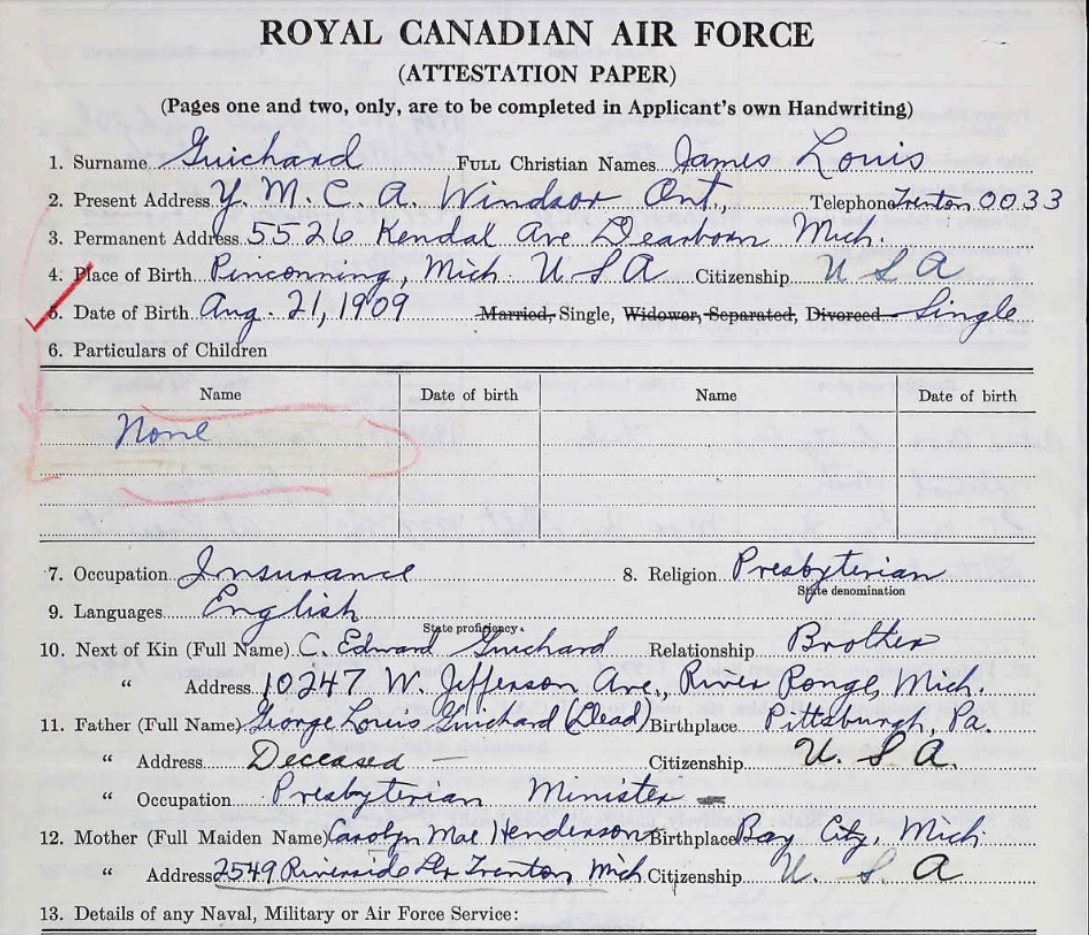 ROYAL CANADIAN AIR FORCE
(ATTESTATION PAPER)
(Pages one and two, only, are to be completed in Applicant's own Handwriting)
1. Surname Guichard FULL Christian Names James Louis
2. Present Address Y. M. C. A. Windsor Ont., Telephone Trenton 0033
3. Permanent Address 5526 Kendal Ave Dearborn Mich.
4. Place of Birth Pinconning, Mich. U S A Citizenship U S A
5. Date of Birth Aug. 21, 1909 Married, Single, Widower, Separated, Divorced Single
6. Particulars of Children
Name Date of birth Name Date of birth
None
7. Occupation Insurance 8. Religion Presbyterian
State denomination
9. Languages English
State proficiency.
10. Next of Kin (Full Name) C. Edward Guichard Relationship Brother
" Address 10247 W. Jefferson Ave., River Rouge, Mich.
11. Father (Full Name) George Louis Guichard (Dead) Birthplace Pittsburgh, Pa.
" Address Deceased — Citizenship U. S A.
" Occupation Presbyterian Minister
12. Mother (Full Maiden Name) Carolyn Mae Henderson Birthplace Bay City, Mich
" Address 2549 Riverside Trenton, Mich. Citizenship U. S. A
13. Details of any Naval, Military or Air Force Service: